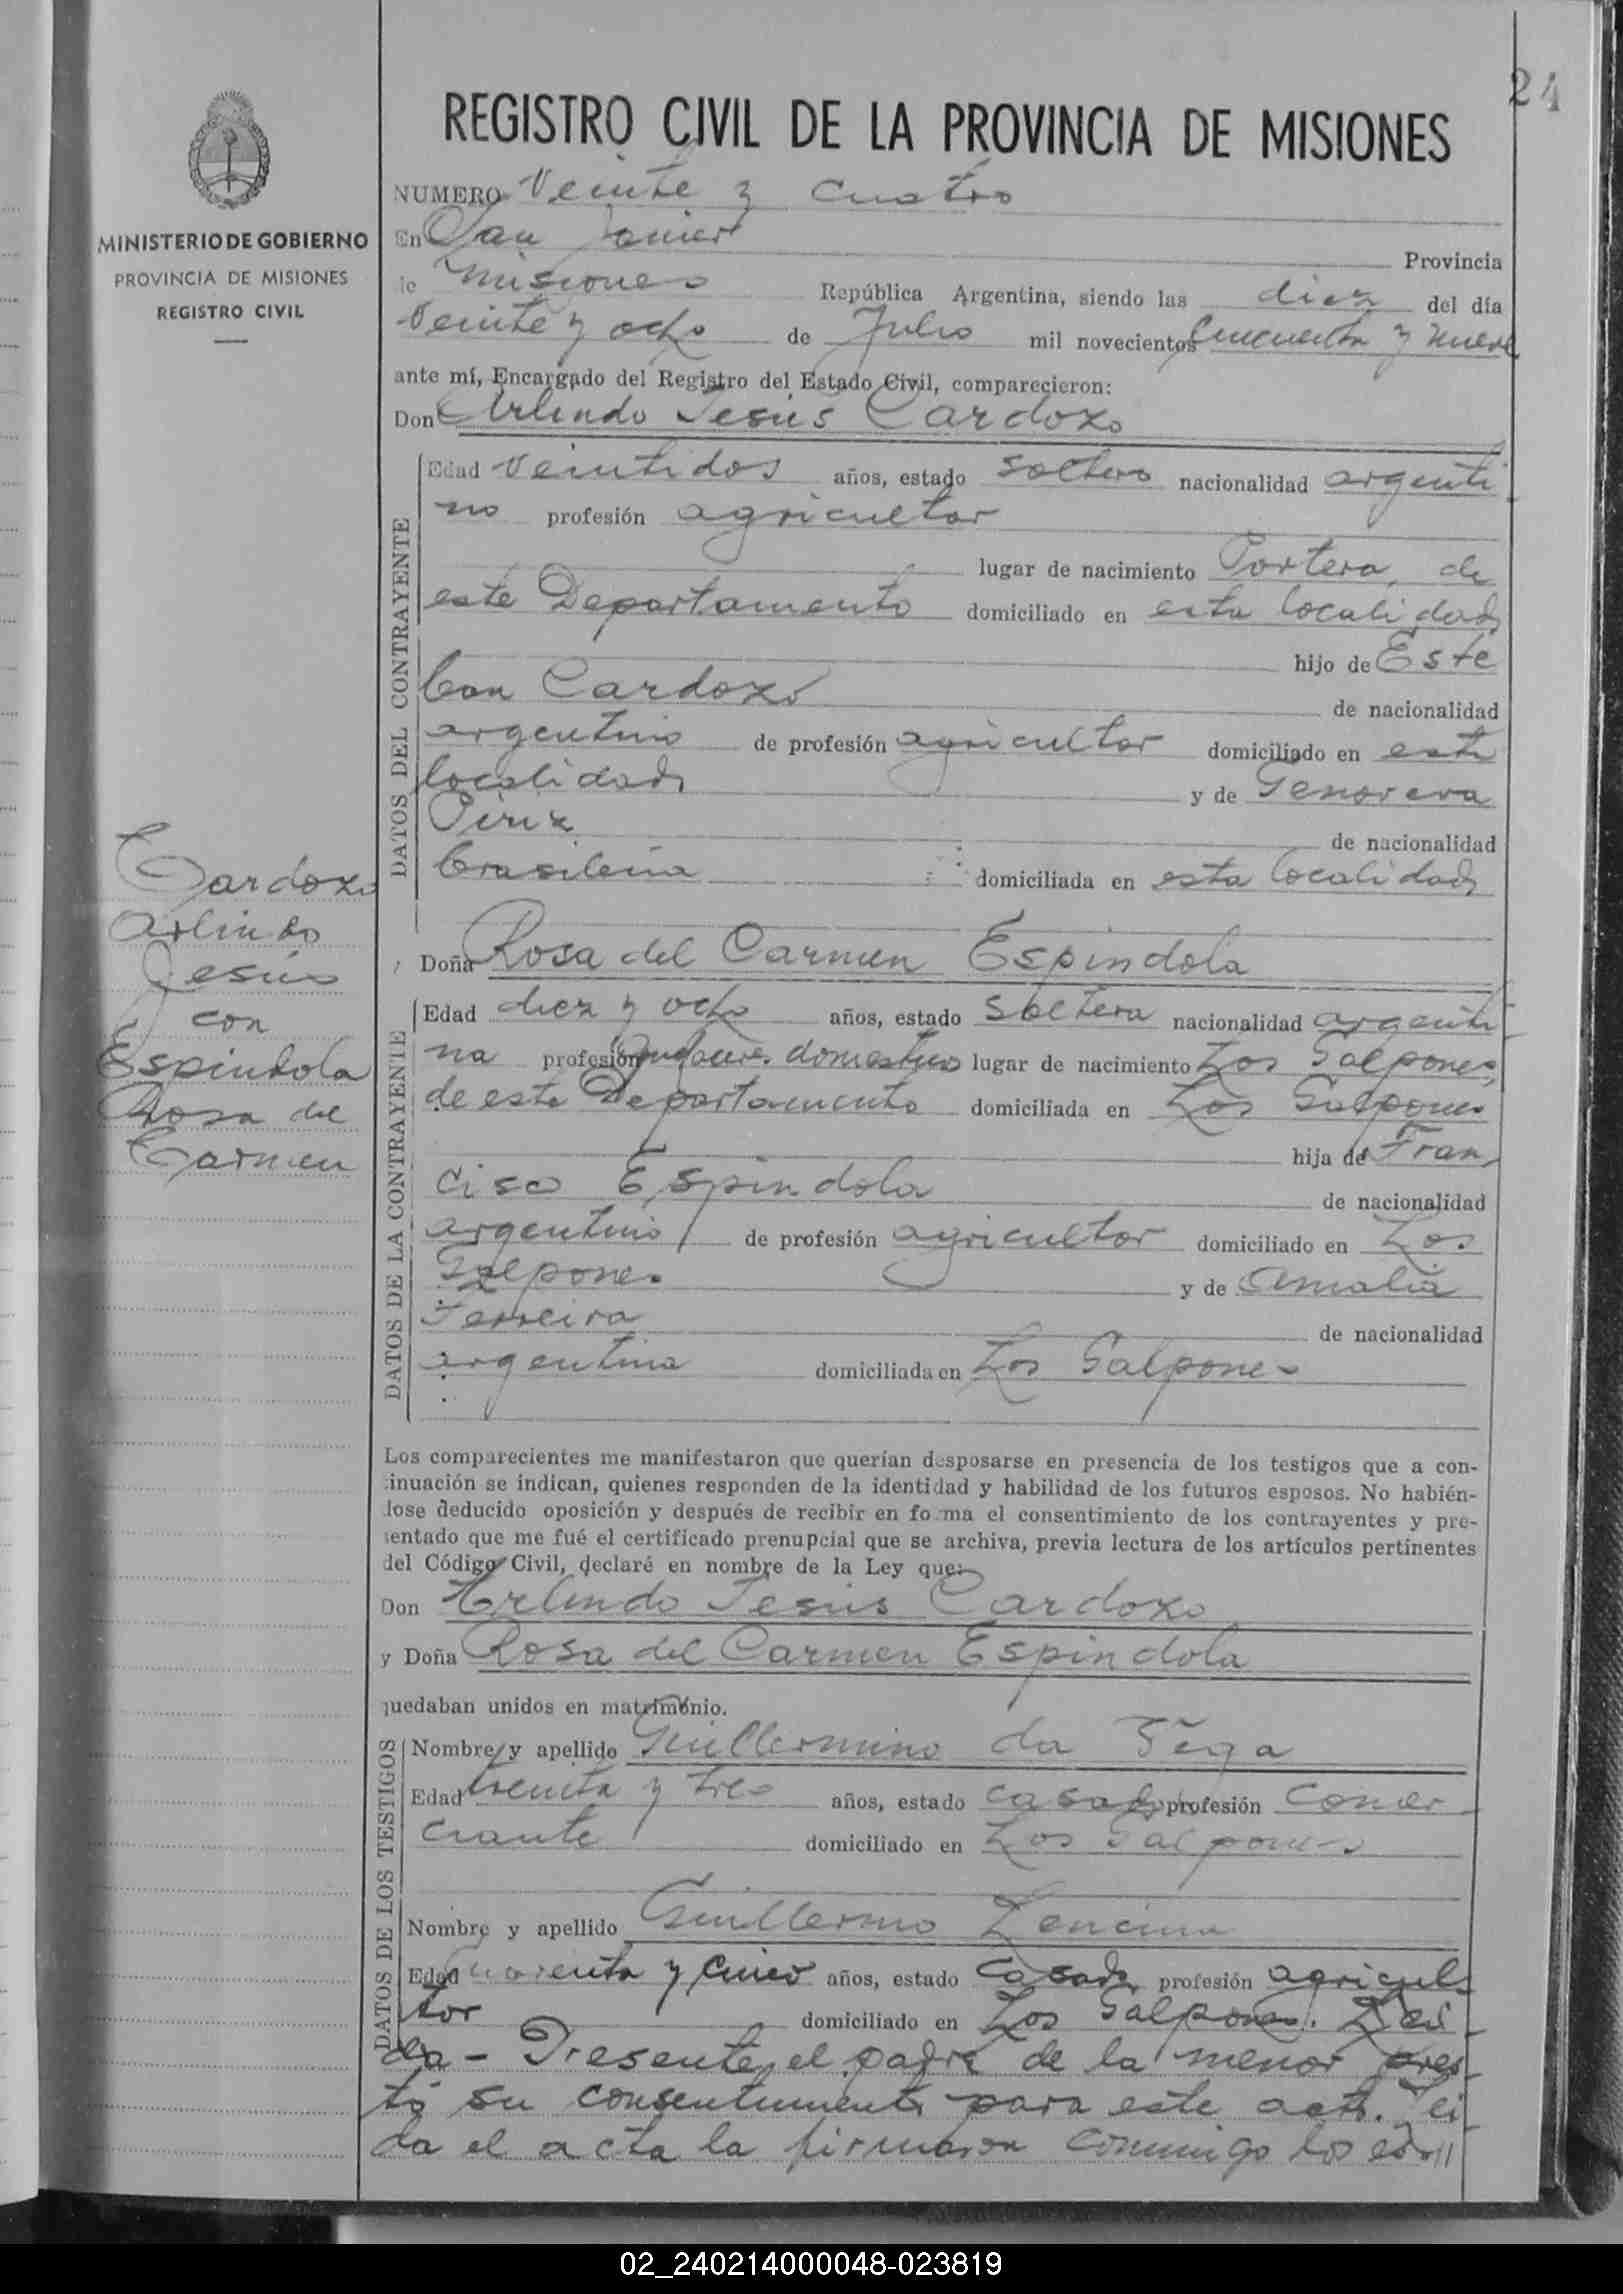 24
REGISTRO CIVIL DE LA PROVINCIA DE MISIONES
MINISTERIO DE GOBIERNO
PROVINCIA DE MISIONES
REGISTRO CIVIL
NUMERO Veinte y cuatro
En San Javier Provincia
de Misiones República Argentina, siendo las diez del día
veinte y ocho de Julio mil novecientos cincuenta y nueve
ante mí, Encargado del Registro del Estado Civil, comparecieron:
Don Arlindo Jesús Cardozo
DATOS DEL CONTRAYENTE
Edad veintidos años, estado soltero nacionalidad argenti
no profesión agricultor
lugar de nacimiento Portera, de
este Departamento domiciliado en esta localidad,
hijo de Este
ban Cardozo de nacionalidad
argentino de profesión agricultor domiciliado en esta
localidad, y de Genoveva
Piriz de nacionalidad
brasileña domiciliada en esta localidad,
Cardozo
Arlindo
Jesús
con
Espindola
Rosa del
Carmen
Doña Rosa del Carmen Espindola
DATOS DE LA CONTRAYENTE
Edad diez y ocho años, estado soltera nacionalidad argenti
na profesión domesticos lugar de nacimiento Los Galpones,
de este Departamento domiciliada en Los Galpones
hija de Fran
cisco Espindola de nacionalidad
argentino de profesión agricultor domiciliado en Los
Galpones y de Amalia
Ferreira de nacionalidad
argentina domiciliada en Los Galpones
Los comparecientes me manifestaron que querían desposarse en presencia de los testigos que a con-
tinuación se indican, quienes responden de la identidad y habilidad de los futuros esposos. No habién-
dose deducido oposición y después de recibir en forma el consentimiento de los contrayentes y pre-
sentado que me fué el certificado prenupcial que se archiva, previa lectura de los artículos pertinentes
del Código Civil, declaré en nombre de la Ley que:
Don Arlindo Jesús Cardozo
y Doña Rosa del Carmen Espindola
quedaban unidos en matrimonio.
DATOS DE LOS TESTIGOS
Nombre y apellido Guillermino da
Edad treinta y tres años, estado casado profesión comer
ciante domiciliado en Los Galpones
Nombre y apellido Guillermo Lencina
Edad cuarenta y cinco años, estado casado profesión agricul
tor domiciliado en Los Galpones. Lei
da - Presente el padre de la menor pres
tó su consentimiento para este acto. Lei
da el acta la firmaron conmigo los
02_240214000048-023819